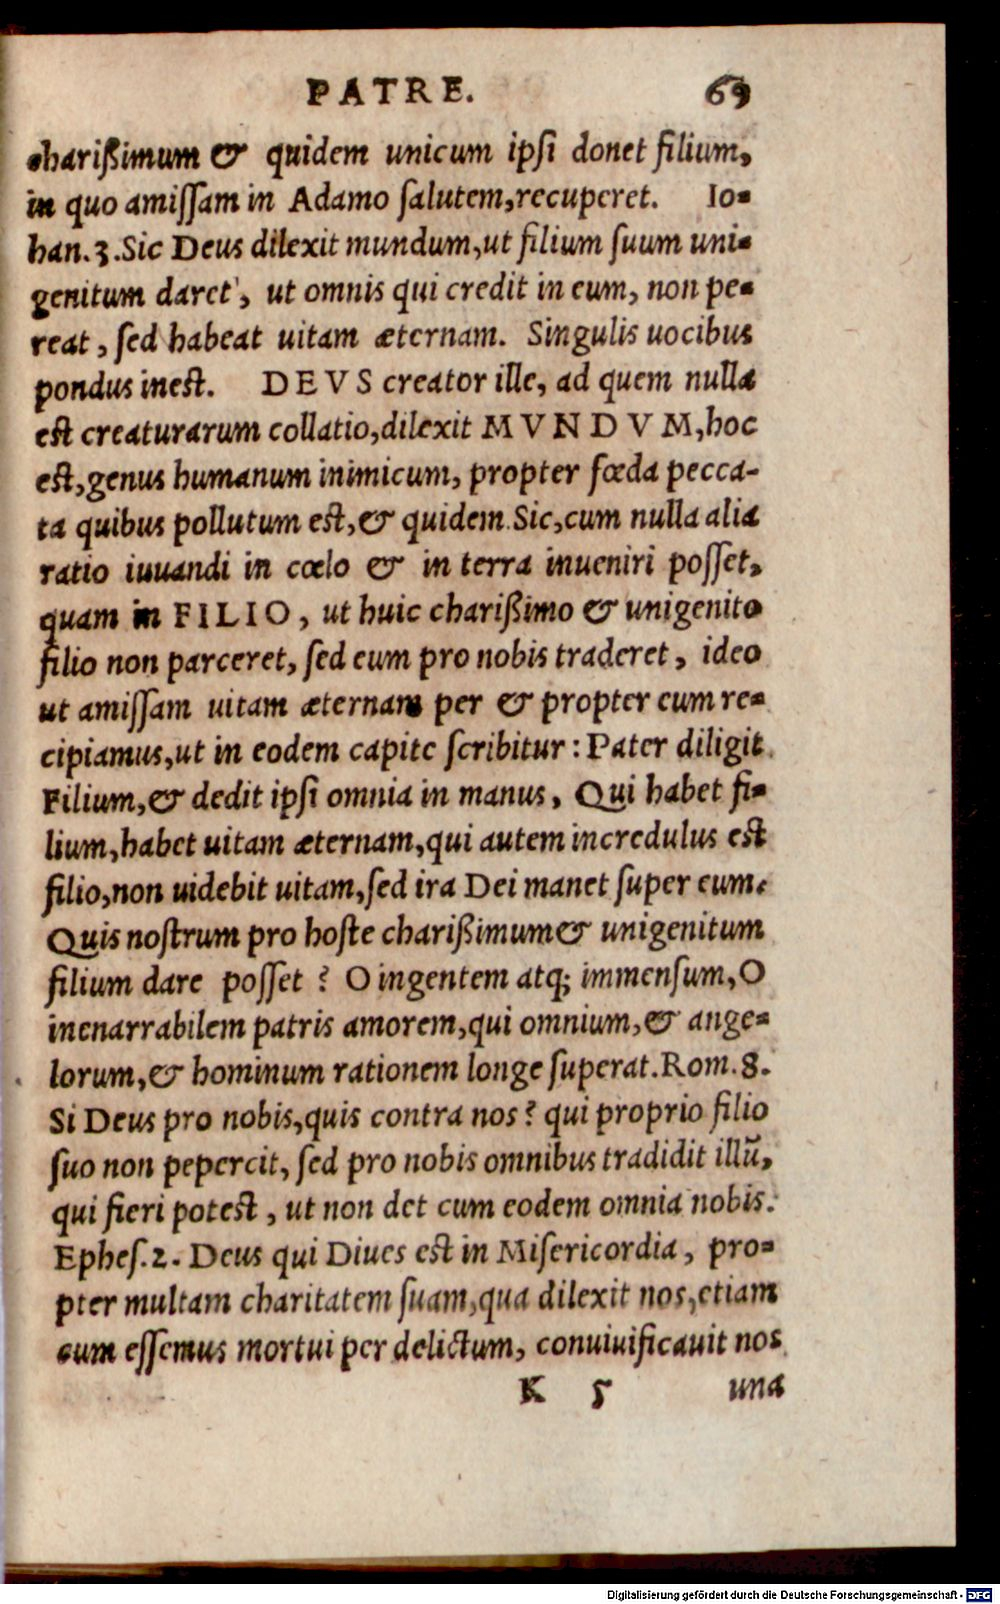 PATRE. 69
charißimum & quidem unicum ipſi donet filium,
in quo amiſſam in Adamo ſalutem, recuperet. Io-
han. 3. Sic Deus dilexit mundum, ut filium ſuum uni-
genitum daret, ut omnis qui credit in eum, non pe-
reat, ſed habeat uitam æternam. Singulis uocibus
pondus ineſt. DEVS creator ille, ad quem nulla
eſt creaturarum collatio, dilexit MVNDVM, hoc
eſt, genus humanum inimicum, propter fœda pecca-
ta quibus pollutum eſt, & quidem Sic, cum nulla alia
ratio iuuandi in cœlo & in terra inueniri poſſet,
quam in FILIO, ut huic charißimo & unigenito
filio non parceret, ſed eum pro nobis traderet, ideo
ut amiſſam uitam æternam per & propter eum re-
cipiamus, ut in eodem capite ſcribitur: Pater diligit
Filium, & dedit ipſi omnia in manus, Qui habet fi-
lium, habet uitam æternam, qui autem incredulus eſt
filio, non uidebit uitam, ſed ira Dei manet ſuper eum.
Quis noſtrum pro hoſte charißimum & unigenitum
filium dare poſſet? O ingentem atq; immenſum, O
inenarrabilem patris amorem, qui omnium, & ange-
lorum, & hominum rationem longe ſuperat. Rom. 8.
Si Deus pro nobis, quis contra nos? qui proprio filio
ſuo non pepercit, ſed pro nobis omnibus tradidit illũ,
qui fieri poteſt, ut non det cum eodem omnia nobis.
Epheſ. 2. Deus qui Diues eſt in Miſericordia, pro-
pter multam charitatem ſuam, qua dilexit nos, etiam
cum eſſemus mortui per delictum, conuiuificauit nos
K 5 una
Digitalisierung gefördert durch die Deutsche Forschungsgemeinschaft - DFG